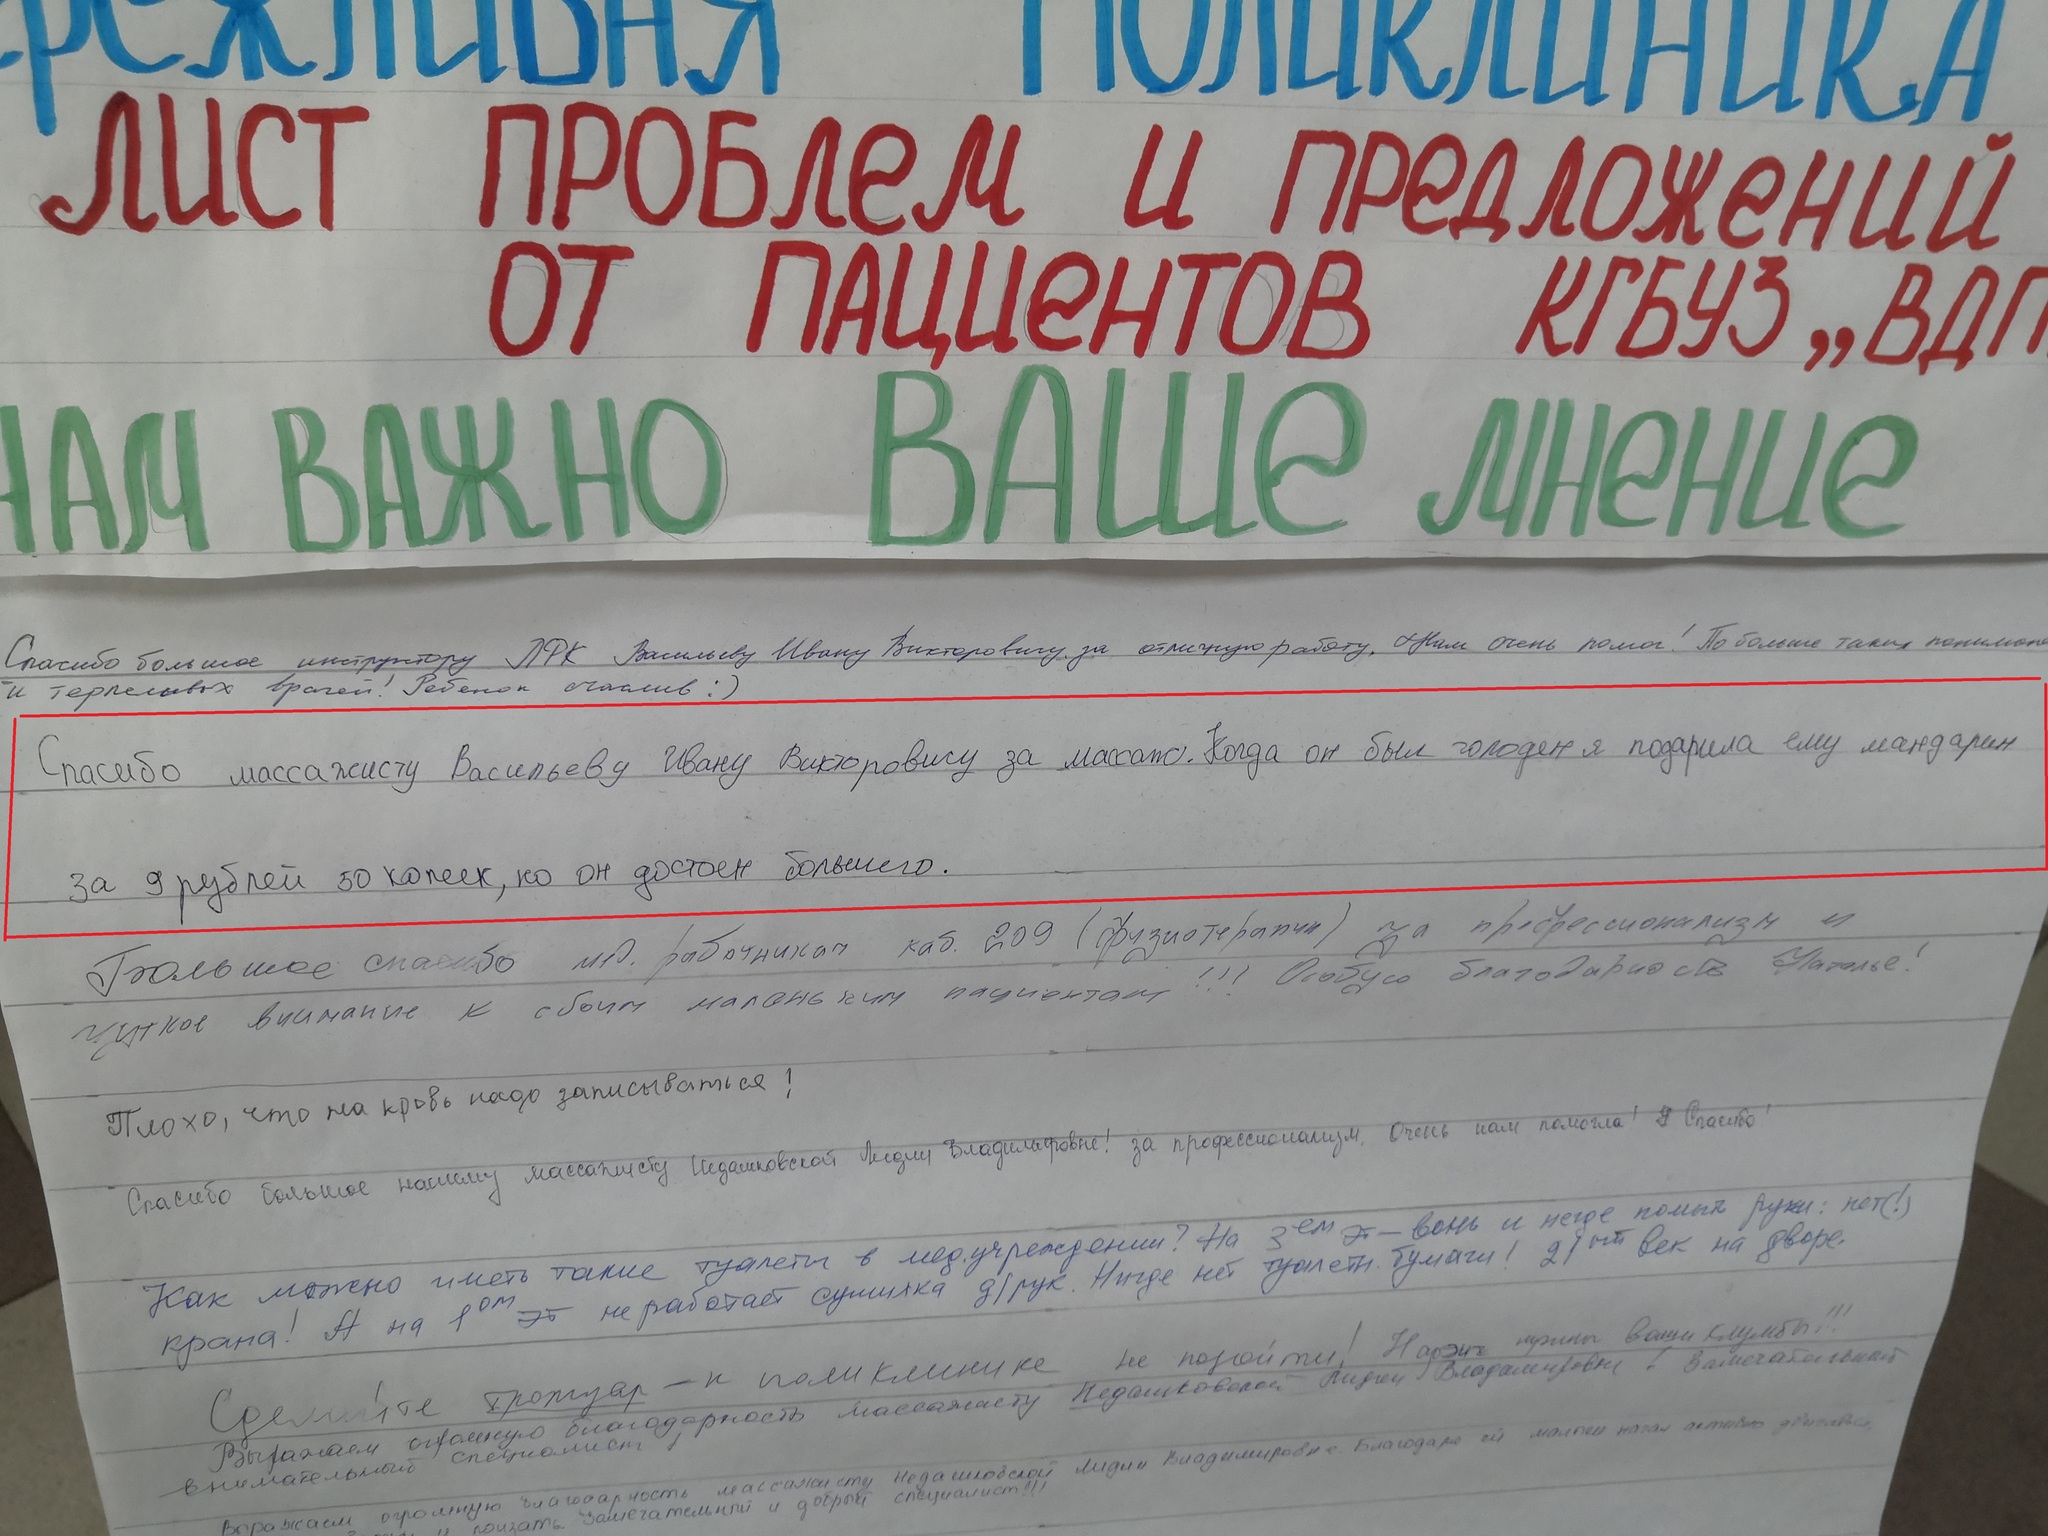 ЕРЕЖЛИВАЯ ПОЛИКЛИНИКА
ЛИСТ ПРОБЛЕМ И ПРЕДЛОЖЕНИЙ
ОТ ПАЦИЕНТОВ КГБУЗ „ВДП
НАМ ВАЖНО ВАШЕ МНЕНИЕ
Спасибо большое инструктору ЛФК Васильеву Ивану Викторовичу за отличную работу. Нам очень помог! По больше таких понимающ
и терпеливых врачей! Ребенок счастлив :)
Спасибо массажисту Васильеву Ивану Викторовичу за массаж. Когда он был голоден я подарила ему мандарин
за 9 рублей 50 копеек, но он достоен большего.
Большое спасибо м.д. работникам каб. 209 (физиотерапии) за профессионализм и
чуткое внимание к своим маленьким пациентам!!! Особую благодарность Наталье!
Плохо, что на кровь надо записываться!
Спасибо большое нашему массажисту Недашковской Лидии Владимировне! за профессионализм. Очень нам помогла! Спасибо!
Как можно иметь такие туалеты в мед.учреждении? На 3ем эт – вонь и негде помыть руки: нет(!)
крана! А на 1ом эт не работает сушилка д/рук. Нигде нет туалетн. бумаги! 21ый век на дворе.
Сделайте тротуар – к поликлинике не подойти! нужны ваши клумбы!!!
Выражаем огромную благодарность массажисту Недашковской Лидии Владимировне! Замечательный
внимательный специалист!
Выражаем огромную благодарность массажисту Недашковской Лидии Владимировне. Благодаря ей малыш начал активно двигаться,
ползать. Замечательный и добрый специалист!!!